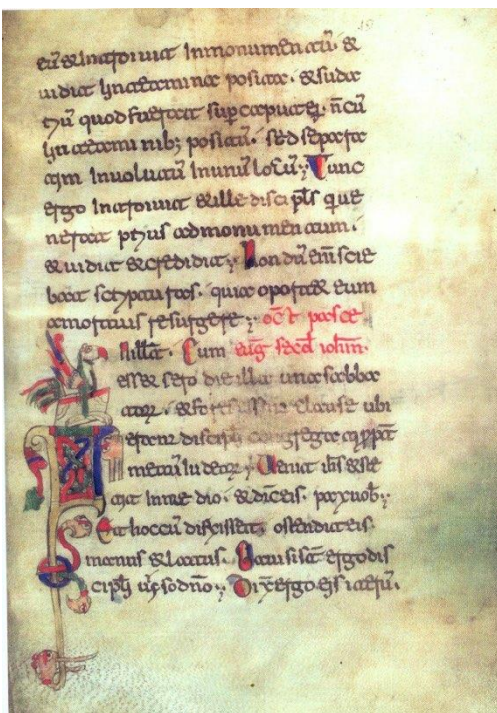 eū & introiuit in monumentū. &
uidit linteamina posita. & suda
riū quod fuerat sup caput ei; n̄ cū
linteaminib; positū. sed separa
tim inuolutū in unū locū; Tunc
ergo introiuit & ille discipl̄s qui ue
nerat prius ad monumentum.
& uidit & credidit; Nondū eni̅ scie
bant scripturas. quia oport& eum
a mortuis resurgere; oct̄ pasce
In illa. Cum eug̅ secd̄ ioh̅m.
ess& sero die illa una sabba
tor. & fores clause ubi
erant discipli congregati ppt
metū iudeor; Uenit ih̅s & ste
tit in medio. & dic̄ eis. pax uob;
Et hoc cū dixiss&. ostendit eis
manus & latus. Gauisi st̄ ergo dis
cipli uiso dn̄o; Dix̄ ergo eis iterū.